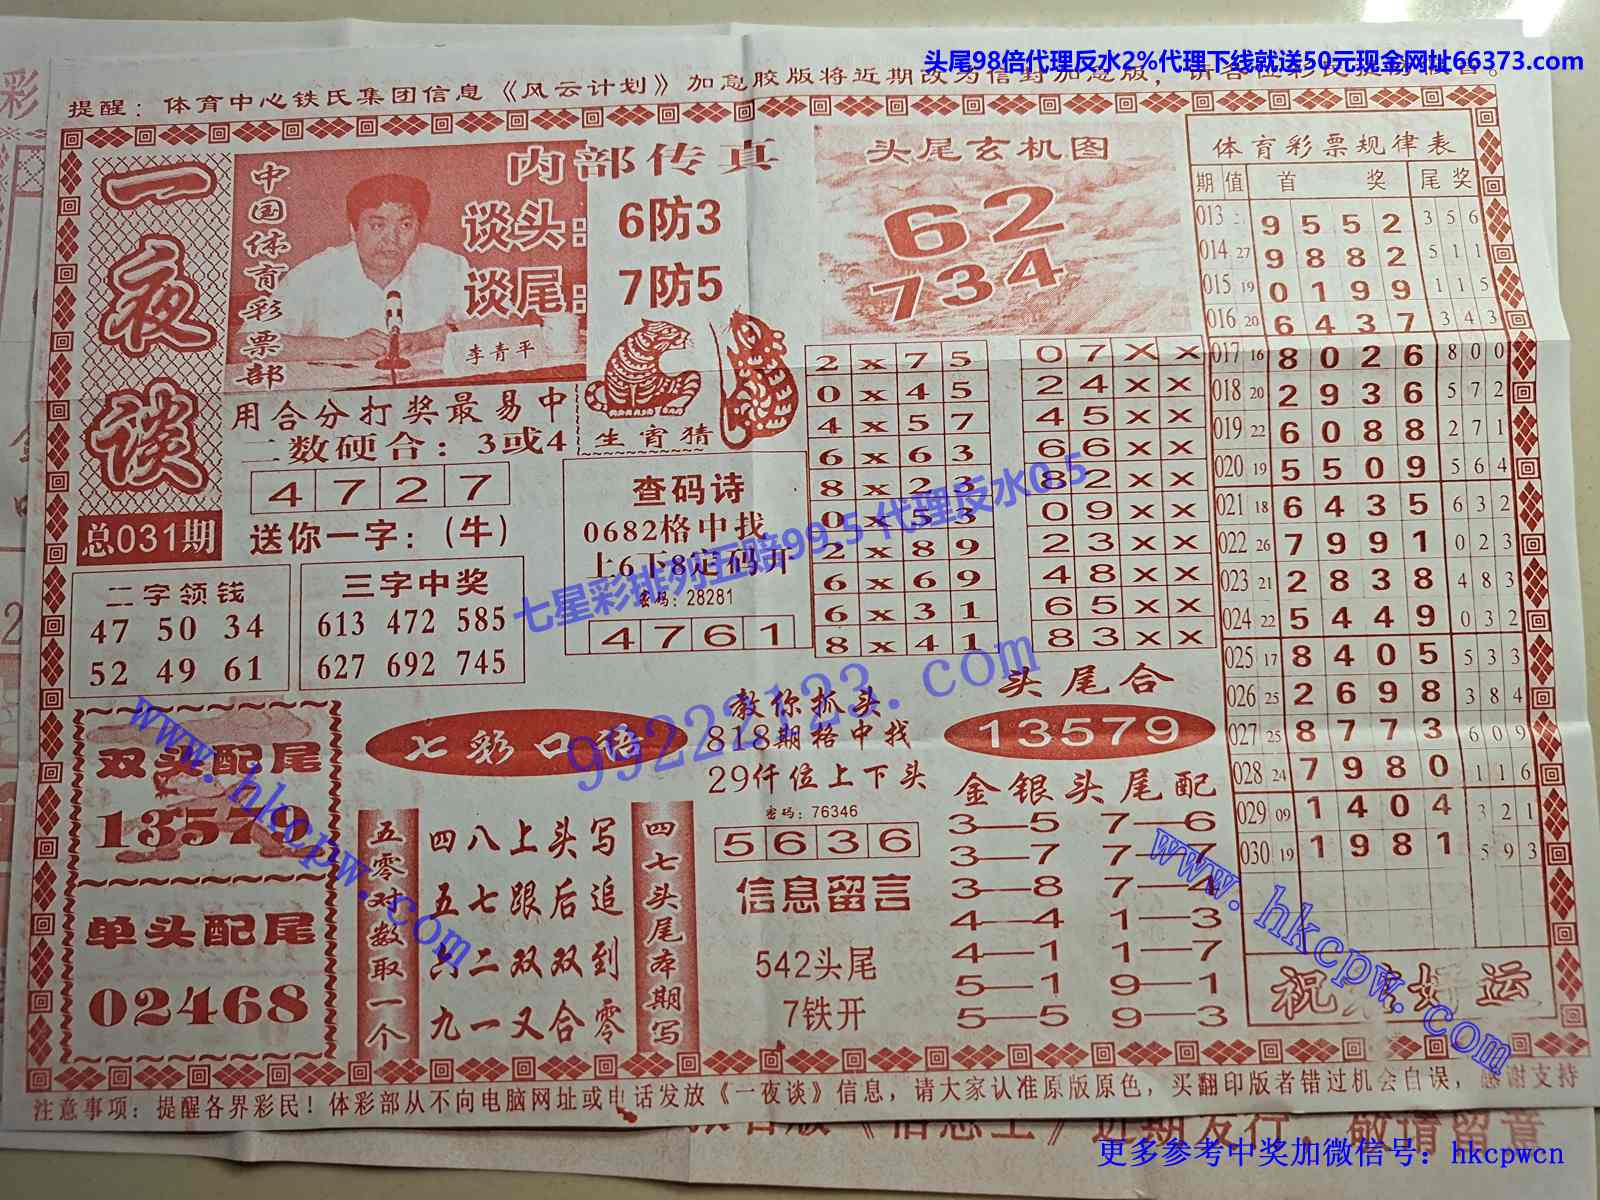 头尾98倍代理反水2%代理下线就送50元现金网址66373.com
提醒：体育中心铁氏集团信息《风云计划》加急胶版将近期改为信封加急版，请各位彩民提防假冒。
一夜谈
总031期
中国体育彩票部
内部传真
谈头：6防3
谈尾：7防5
李青平
生肖猜
用合分打奖最易中
二数硬合：3或4
4 7 2 7
送你一字：（牛）
二字领钱
47 50 34
52 49 61
三字中奖
613 472 585
627 692 745
查码诗
0682格中找
上6下8定码开
密码：28281
4 7 6 1
头尾玄机图
62
734
2 x 7 5
0 x 4 5
4 x 5 7
6 x 6 3
8 x 2 3
0 x 5 3
2 x 8 9
6 x 6 9
6 x 3 1
8 x 4 1
0 7 X X
2 4 X X
4 5 X X
6 6 X X
8 2 X X
0 9 X X
2 3 X X
4 8 X X
6 5 X X
8 3 X X
体育彩票规律表
期 值 首 奖 尾 奖
013 9 5 5 2 3 5 6
014 27 9 8 8 2 5 1 1
015 19 0 1 9 9 1 1 5
016 20 6 4 3 7 3 4 3
017 16 8 0 2 6 8 0 0
018 20 2 9 3 6 5 7 2
019 22 6 0 8 8 2 7 1
020 19 5 5 0 9 5 6 4
021 18 6 4 3 5 6 3 2
022 26 7 9 9 1 0 2 3
023 21 2 8 3 8 4 8 3
024 22 5 4 4 9 0 3 2
025 17 8 4 0 5 5 3 3
026 25 2 6 9 8 3 8 4
027 25 8 7 7 3 6 0 9
028 24 7 9 8 0 1 1 6
029 09 1 4 0 4 3 2 1
030 19 1 9 8 1 5 9 3
祝 好运
双头配尾
13579
单头配尾
02468
七彩口语
五零对数取一个
四八上头写
五七跟后追
六二双双到
九一又合零
四七头尾本期写
教你抓头
818期格中找
29仟位上下头
密码：76346
5 6 3 6
信息留言
542头尾
7铁开
头尾合
13579
金银头尾配
3—5 7—6
3—7 7—7
3—8 7—4
4—4 1—3
4—1 1—7
5—1 9—1
5—5 9—3
七星彩排列五赔99.5 代理反水0.5
99222123.com
www.hkcpw.com
www.hkcpw.com
注意事项：提醒各界彩民！体彩部从不向电脑网址或电话发放《一夜谈》信息，请大家认准原版原色，买翻印版者错过机会自误，感谢支持
近期发行，敬请留意
更多参考中奖加微信号：hkcpwcn